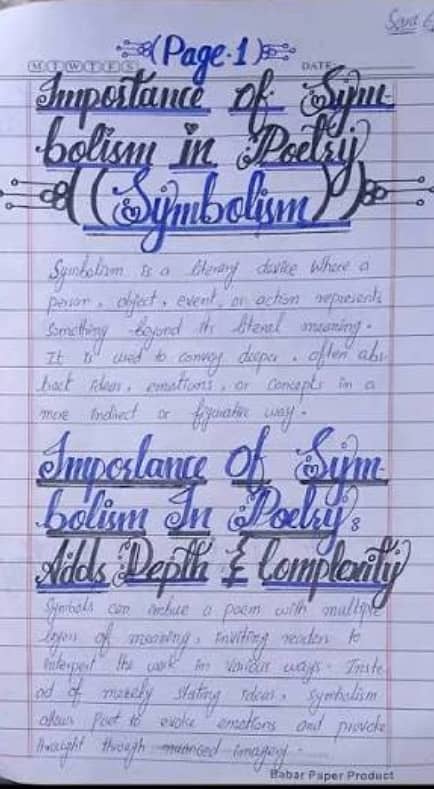 Sara
(Page.1)
M T W T F S
DATE:
Importance of Sym-
bolism in Poetry
((Symbolism))
Symbolism is a literary device where a
person, object, event, or action represents
something beyond its literal meaning.
It is used to convey deeper, often abs-
tract ideas, emotions, or concepts in a
more indirect or figurative way.
Importance Of Sym-
bolism In Poetry:
Adds Depth & Complexity
Symbols can imbue a poem with multiple
layers of meaning, inviting readers to
interpret the work in various ways. Inste-
ad of merely stating ideas, symbolism
allows Poet to evoke emotions and provoke
thought through nuanced imagery.
Babar Paper Product